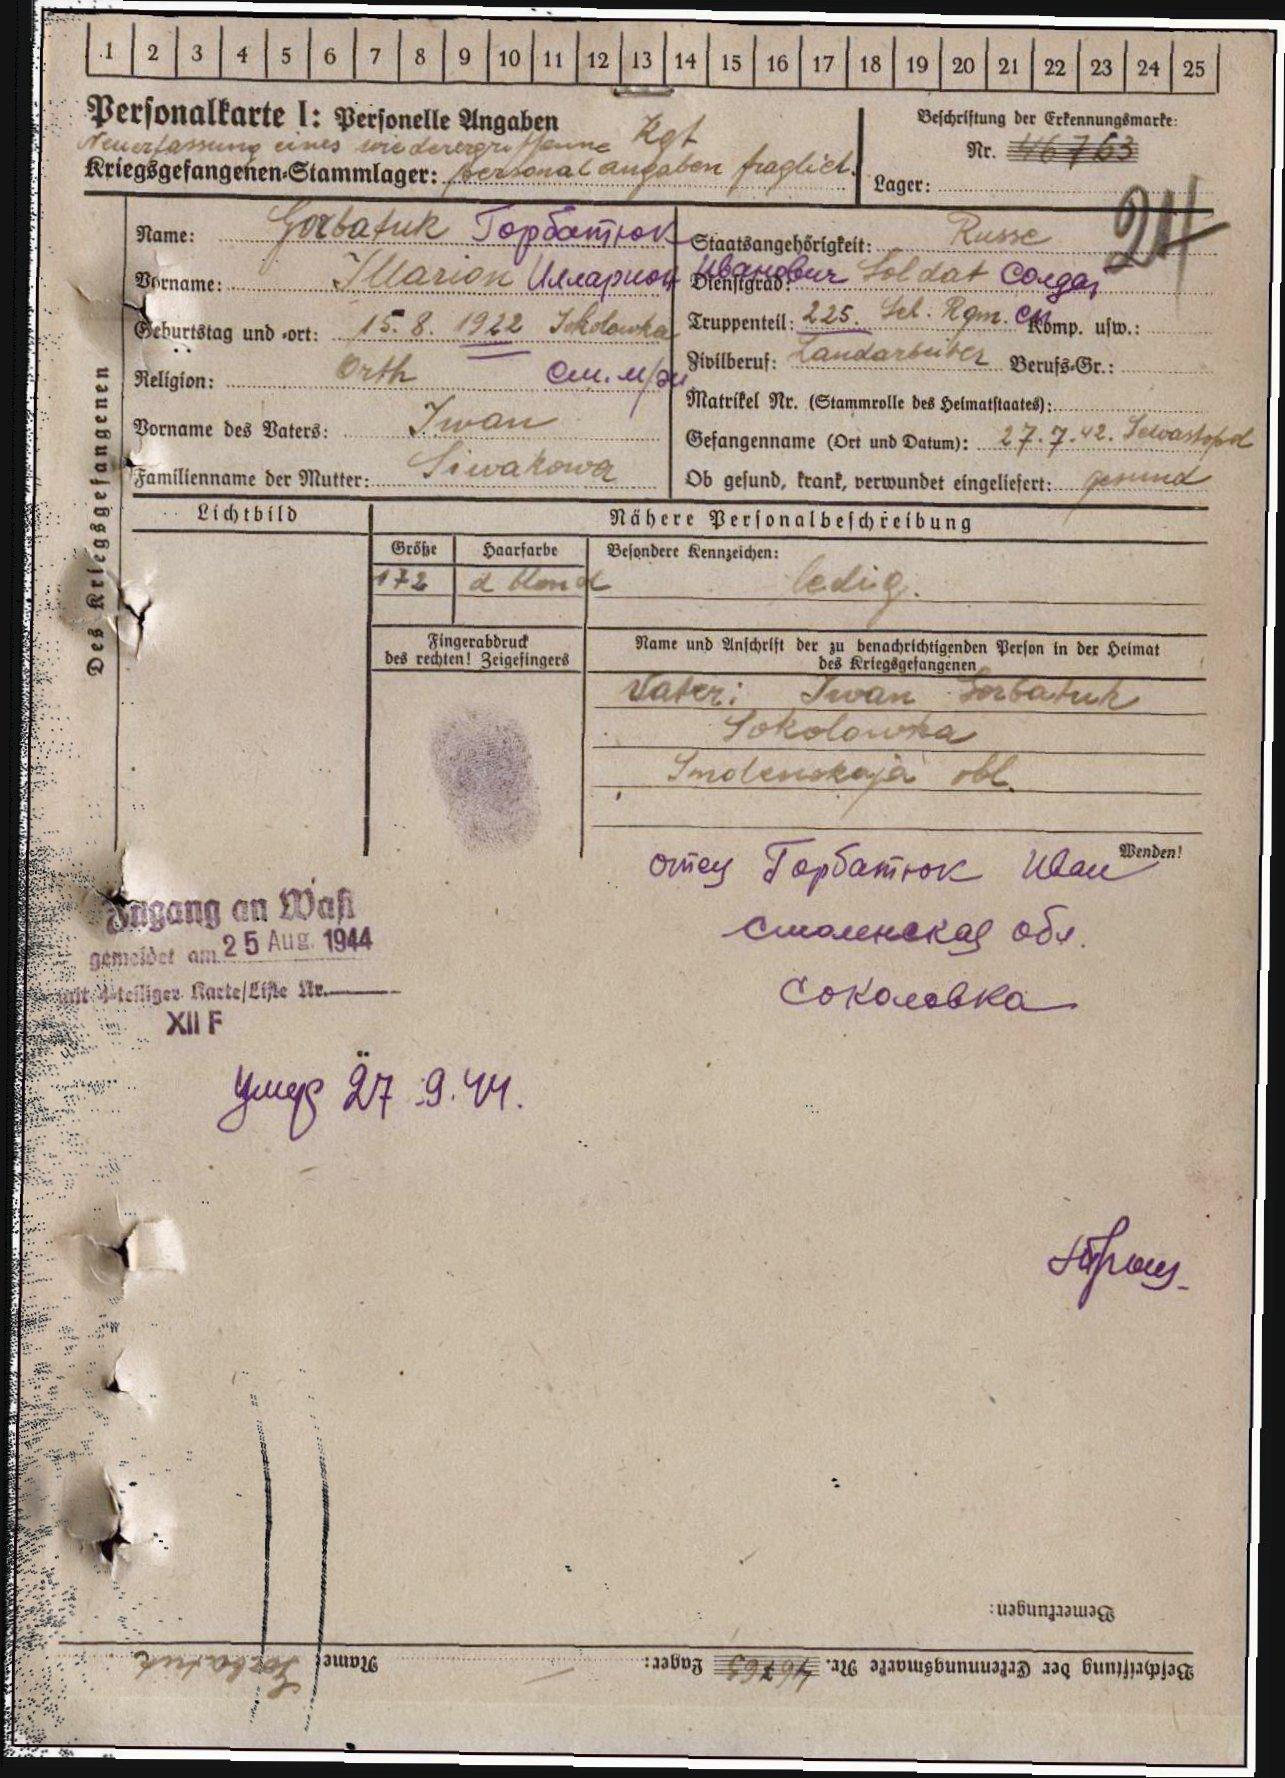 1 2 3 4 5 6 7 8 9 10 11 12 13 14 15 16 17 18 19 20 21 22 23 24 25
Personalkarte I: Personelle Angaben
Beschriftung der Erkennungsmarke:
Neuerfassung eines wiederergriffenne Kgf
Nr. 46763
Kriegsgefangenen-Stammlager: personalangaben fraglich.
Lager:
Des Kriegsgefangenen
Name: Gorbatuk Горбатюк
Staatsangehörigkeit: Russe
Vorname: Illarion Илларион Иванович
Dienstgrad: Soldat солдат
Geburtstag und -ort: 15.8.1922 Sokolowka
Truppenteil: 225. Rgm. Komp. usw.:
Religion: Orth
Zivilberuf: Landarbeiter Berufs-Gr.:
Matrikel Nr. (Stammrolle des Heimatstaates):
Vorname des Vaters: Iwan
Gefangenname (Ort und Datum): 27.7.42. Sewastopol
Familienname der Mutter: Siwakowa
Ob gesund, krank, verwundet eingeliefert: gesund
Lichtbild
Nähere Personalbeschreibung
Größe Haarfarbe Besondere Kennzeichen:
172 d blond ledig.
Fingerabdruck
des rechten! Zeigefingers
Name und Anschrift der zu benachrichtigenden Person in der Heimat
des Kriegsgefangenen
Vater: Iwan Gorbatuk
Sokolowka
Smolenskaja obl.
Wenden!
отец Горбатюк Иван
Смоленская обл.
Соколовка
Zugang an Wast
gemeldet am 25 Aug. 1944
mit 4-teiliger Karte/Liste Nr.
XII F
Умер 27.9.44.
Bemerkungen:
Beschriftung der Erkennungsmarke Nr. 46763 Lager: Name: Gorbatuk